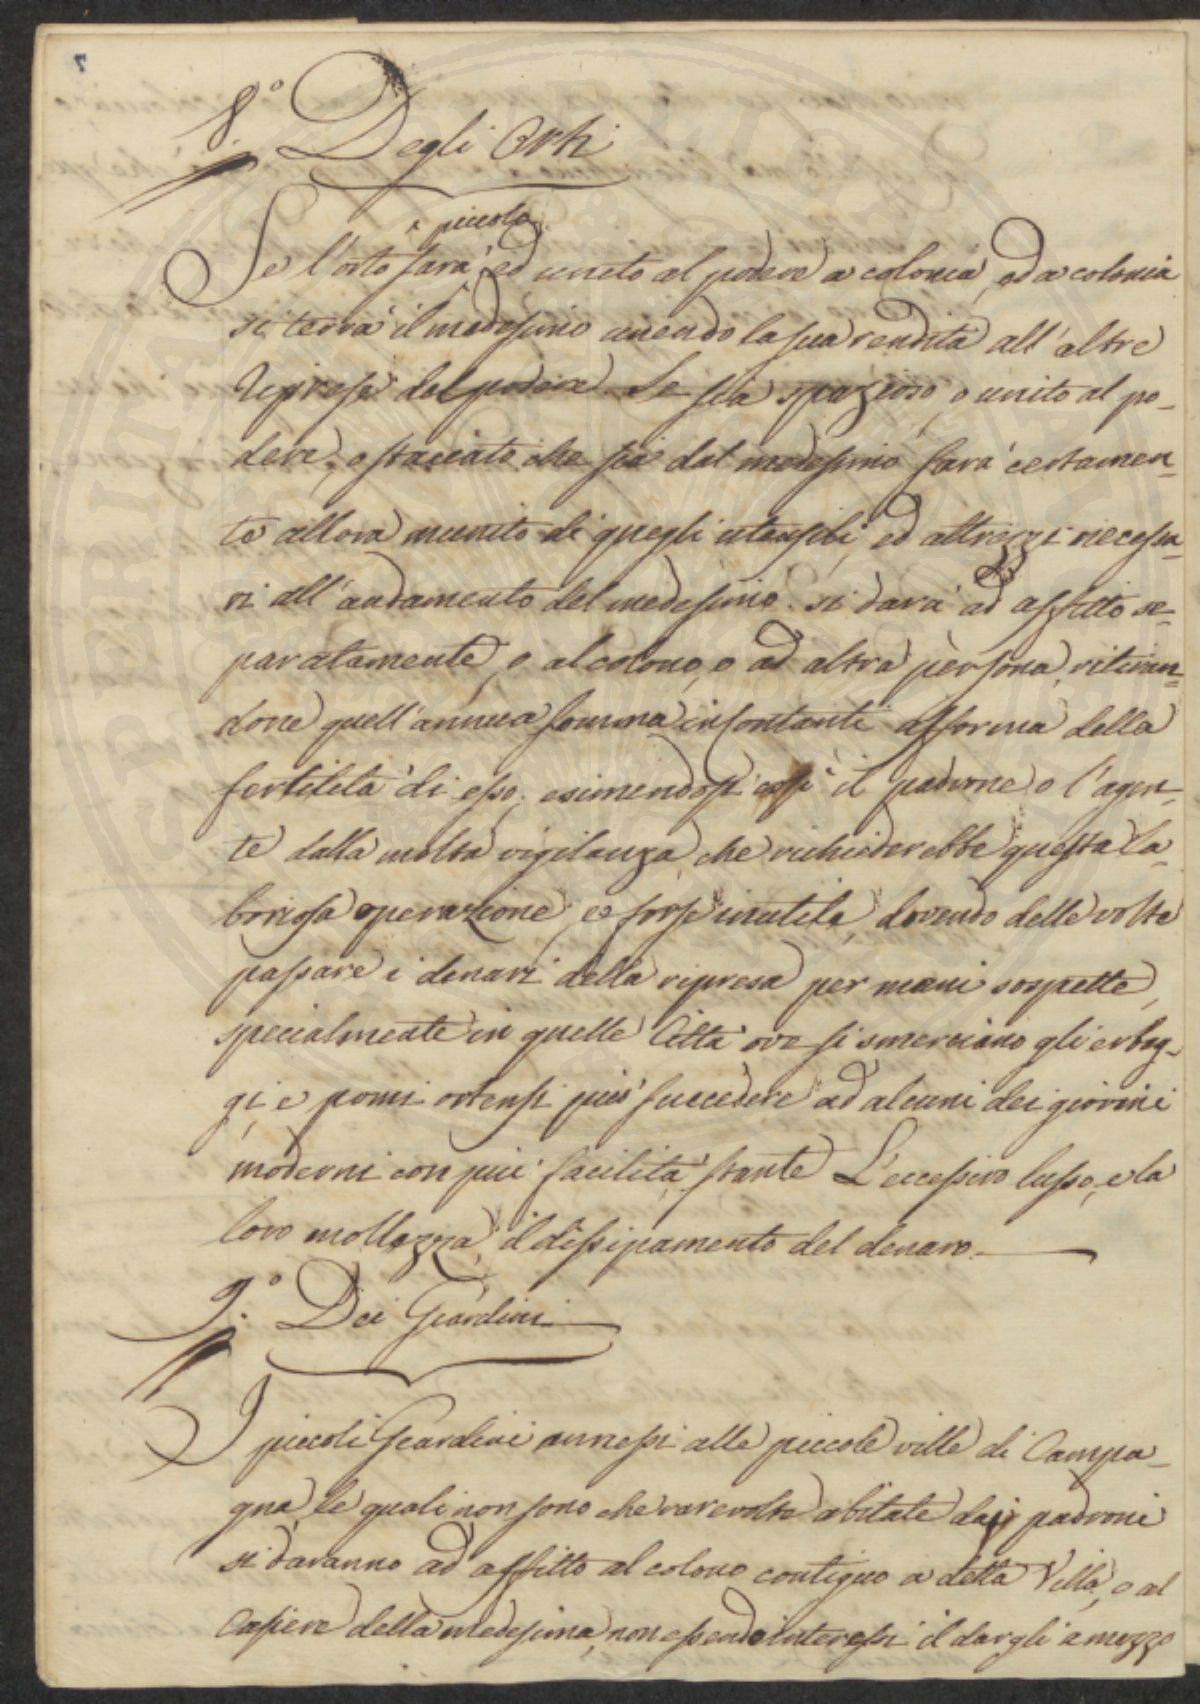 7
8.° Degli Orti
piccolo
Se l'orto sarà ed unito al podere a colonia, ed a colonia
si terrà il medesimo unendo la sua rendita all'altre
riprese del podere. Se sia spazioso, o unito al po-
dere, o staccato che sia dal medesimo sarà certamen-
te allora munito di quegli utensili, ed attrezzi necessa-
ri all'andamento del medesimo. si darà ad affitto se-
paratamente, o al colono, o ad altra persona, ritiran-
done quell'annua somma in contanti afforma della
fertilità di esso; esimendosi così il padrone o l'agen-
te dalla molta vigilanza, che richiederebbe questa la-
boriosa operazione, e forse inutile, dovendo delle volte
passare i denari della ripresa per mani sospette,
specialmente in quelle Città ove si smerciano gli erbag-
gi, e pomi ortensi può succedere ad alcuni dei giovini
moderni con più facilità, stante L'eccessivo lusso, e la
loro mollezza, il dissipamento del denaro.
9.° Dei Giardini
I piccoli Giardini annessi alle piccole ville di Campa-
gna, le quali non sono che rare volte abitate dai padroni
si daranno ad affitto al colono contiguo a detta Villa, o al
Casiere della medesima, non essendo interessi il dargli a mezzo